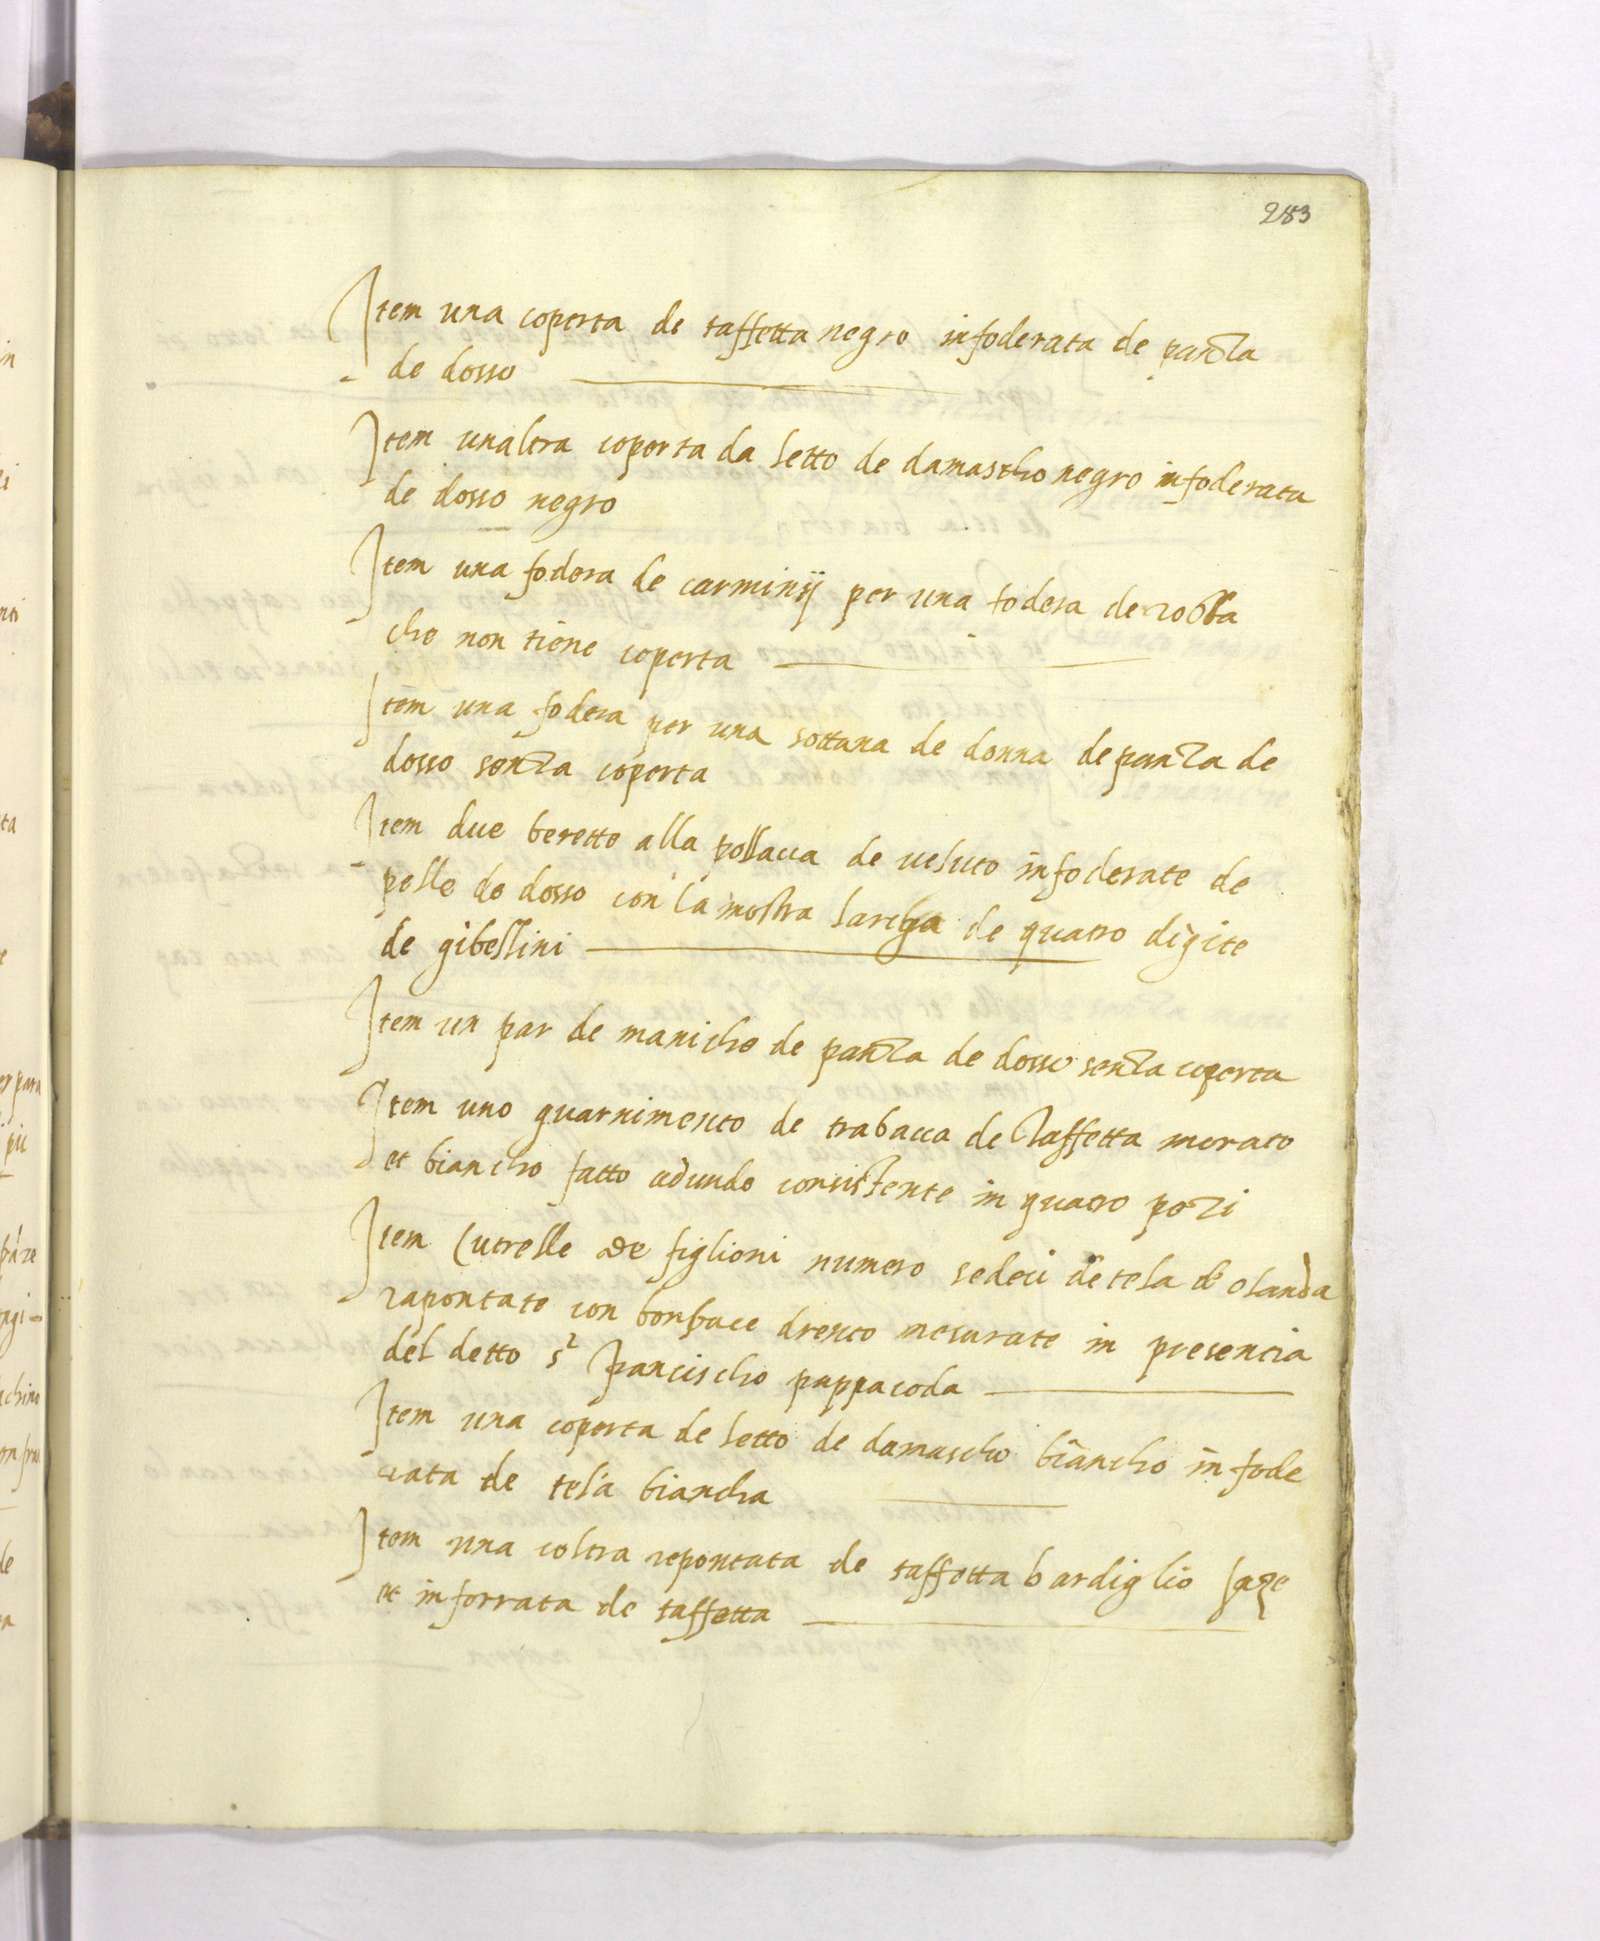 283
Item una coperta de taffetta negro infoderata de panza
de dosso
Item unaltra coperta da letto de damascho negro infoderata
de dosso negro
Item una fodera de carminij per una fodera de robba
che non tiene coperta
Item una fodera per una sottana de donna de panza de
dosso senza coperta
Item due berette alla pollacca de veluto infoderate de
pelle de dosso con la mostra larcha de quatro digite
de gibellini
Item un par de maniche de panza de dosso senza coperta
Item uno guarnimento de trabacca de Taffetta morato
et biancho fatto adundo consistente in quatro pezi
Item Cutrelle de figlioni numero sedeci de tela de olanda
rapontate con bonbace drento mesurate in presencia
del detto sr francischo pappacoda
Item una coperta de letto de damascho biancho in fode
rata de tela biancha
Item una coltra repontata de taffetta bardiglio
et inforrata de taffetta